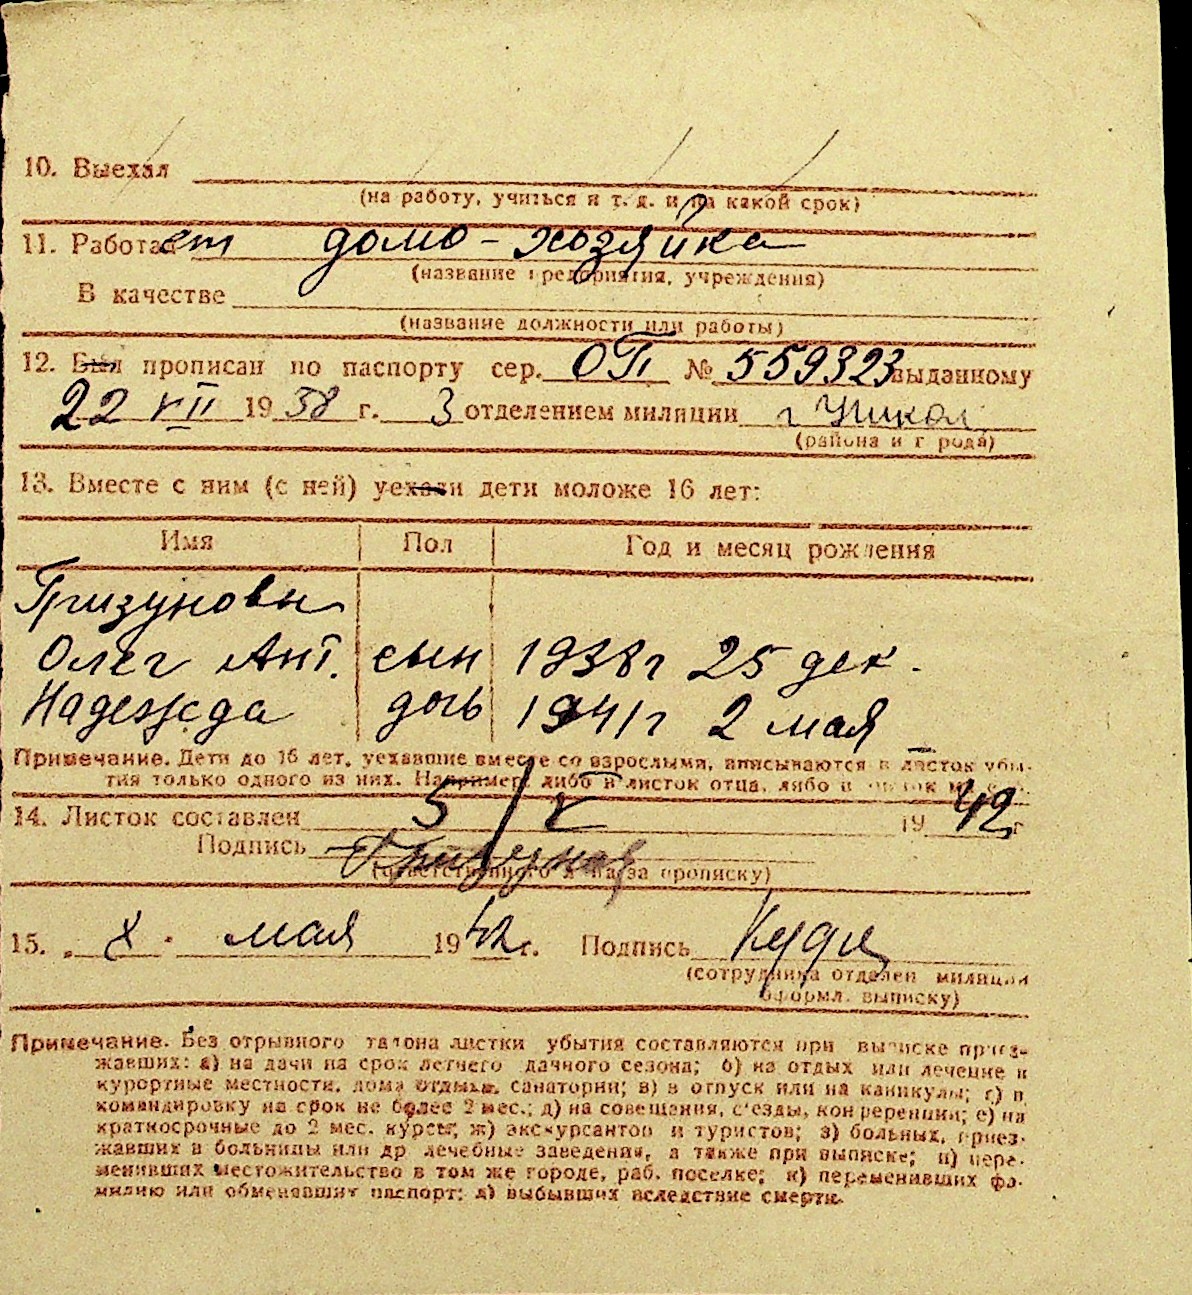 10. Выехал
(на работу, учиться и т. д. и на какой срок)
11. Работает домо-хозяйка
(название предприятия, учреждения)
В качестве
(название должности или работы)
12. Был прописан по паспорту сер. ОП № 559323 выданному
22 VII 1938 г. 3 отделением милиции г
(района и города)
13. Вместе с ним (с ней) уехали дети моложе 16 лет:
Имя Пол Год и месяц рождения
Гризуновы
Олег Ант. сын 1938 г 25 дек.
Надежда дочь 1941 г 2 мая
Примечание. Дети до 16 лет, уехавшие вместе со взрослыми, вписываются в листок убы-
тия только одного из них. Например либо в листок отца, либо в листок
14. Листок составлен 5/V 1942 г
Подпись
(ответственного за прописку)
15. „ 8 " мая 1942 г. Подпись
(сотрудника отделен милиции
оформл. выписку)
Примечание. Без отрывного талона листки убытия составляются при выписке приез-
жавших: а) на дачи на срок летнего дачного сезона; б) на отдых или лечение в
курортные местности, дома отдыха, санатории; в) в отпуск или на каникулы; г) в
командировку на срок не более 2 мес.; д) на совещания, съезды, конференции; е) на
краткосрочные до 2 мес. курсы; ж) экскурсантов и туристов; з) больных, приез-
жавших в больницы или др лечебные заведения, а также при выписке; и) пере-
менивших местожительство в том же городе, раб. поселке; к) переменивших фа-
милию или обменявших паспорт; л) выбывших вследствие смерти.